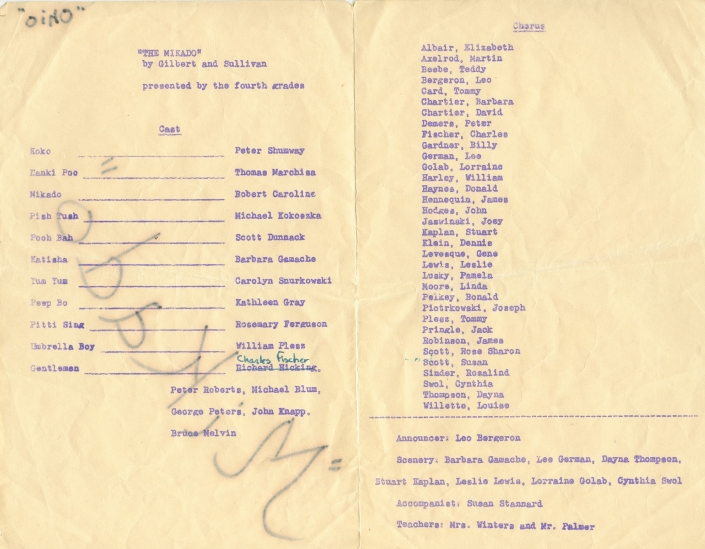 "OHIO"
"THE MIKADO"
by Gilbert and Sullivan
presented by the fourth grades
Cast
Koko Peter Shumway
Nanki Poo Thomas Marchisa
Mikado Robert Caroline
Pish Tush Michael Kokoszka
Pooh Bah Scott Dunnack
Katisha Barbara Gamache
Yum Yum Carolyn Snurkowski
Peep Bo Kathleen Gray
Pitti Sing Rosemary Ferguson
Umbrella Boy William Plesz
Charles Fischer
Gentlemen Richard Hicking,
Peter Roberts, Michael Blum,
George Peters, John Knapp,
Bruce Melvin
Chorus
Albair, Elizabeth
Axelrod, Martin
Beebe, Teddy
Bergeron, Leo
Card, Tommy
Chartier, Barbara
Chartier, David
Demers, Peter
Fischer, Charles
Gardner, Billy
German, Lee
Golab, Lorraine
Harley, William
Haynes, Donald
Hennequin, James
Hodges, John
Jaswinski, Joey
Kaplan, Stuart
Klein, Dennis
Levesque, Gene
Lewis, Leslie
Lusky, Pamela
Moore, Linda
Pelkey, Ronald
Piotrkowski, Joseph
Plesz, Tommy
Pringle, Jack
Robinson, James
Scott, Rose Sharon
Scott, Susan
Sinder, Rosalind
Swol, Cynthia
Thompson, Dayna
Willette, Louise
Announcer: Leo Bergeron
Scenery: Barbara Gamache, Lee German, Dayna Thompson,
Stuart Kaplan, Leslie Lewis, Lorraine Golab, Cynthia Swol
Accompanist: Susan Stannard
Teachers: Mrs. Winters and Mr. Palmer